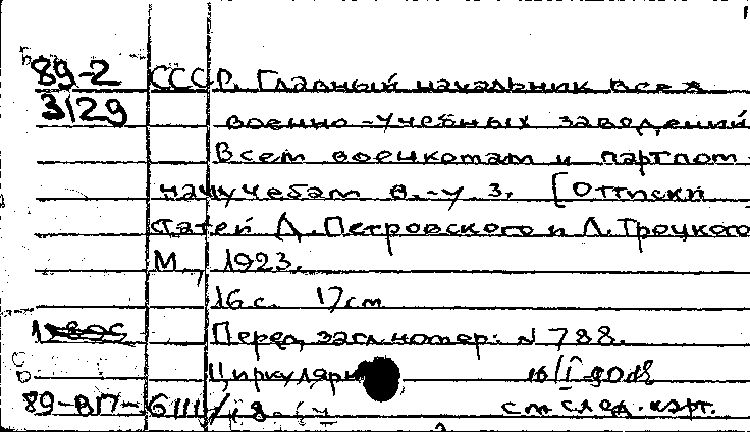 Б
89-2 СССР. Главный начальник всех
3129 военно-учебных заведений
Всем военкомам и партпом-
начучебам в.-у з. [Оттиски
статей Д. Петровского и Л. Троцкого
М., 1923.
16 с. 17 см
Перед загл. номер: N 788.
Циркулярно
89-ВП- 6111/ см след. карт.